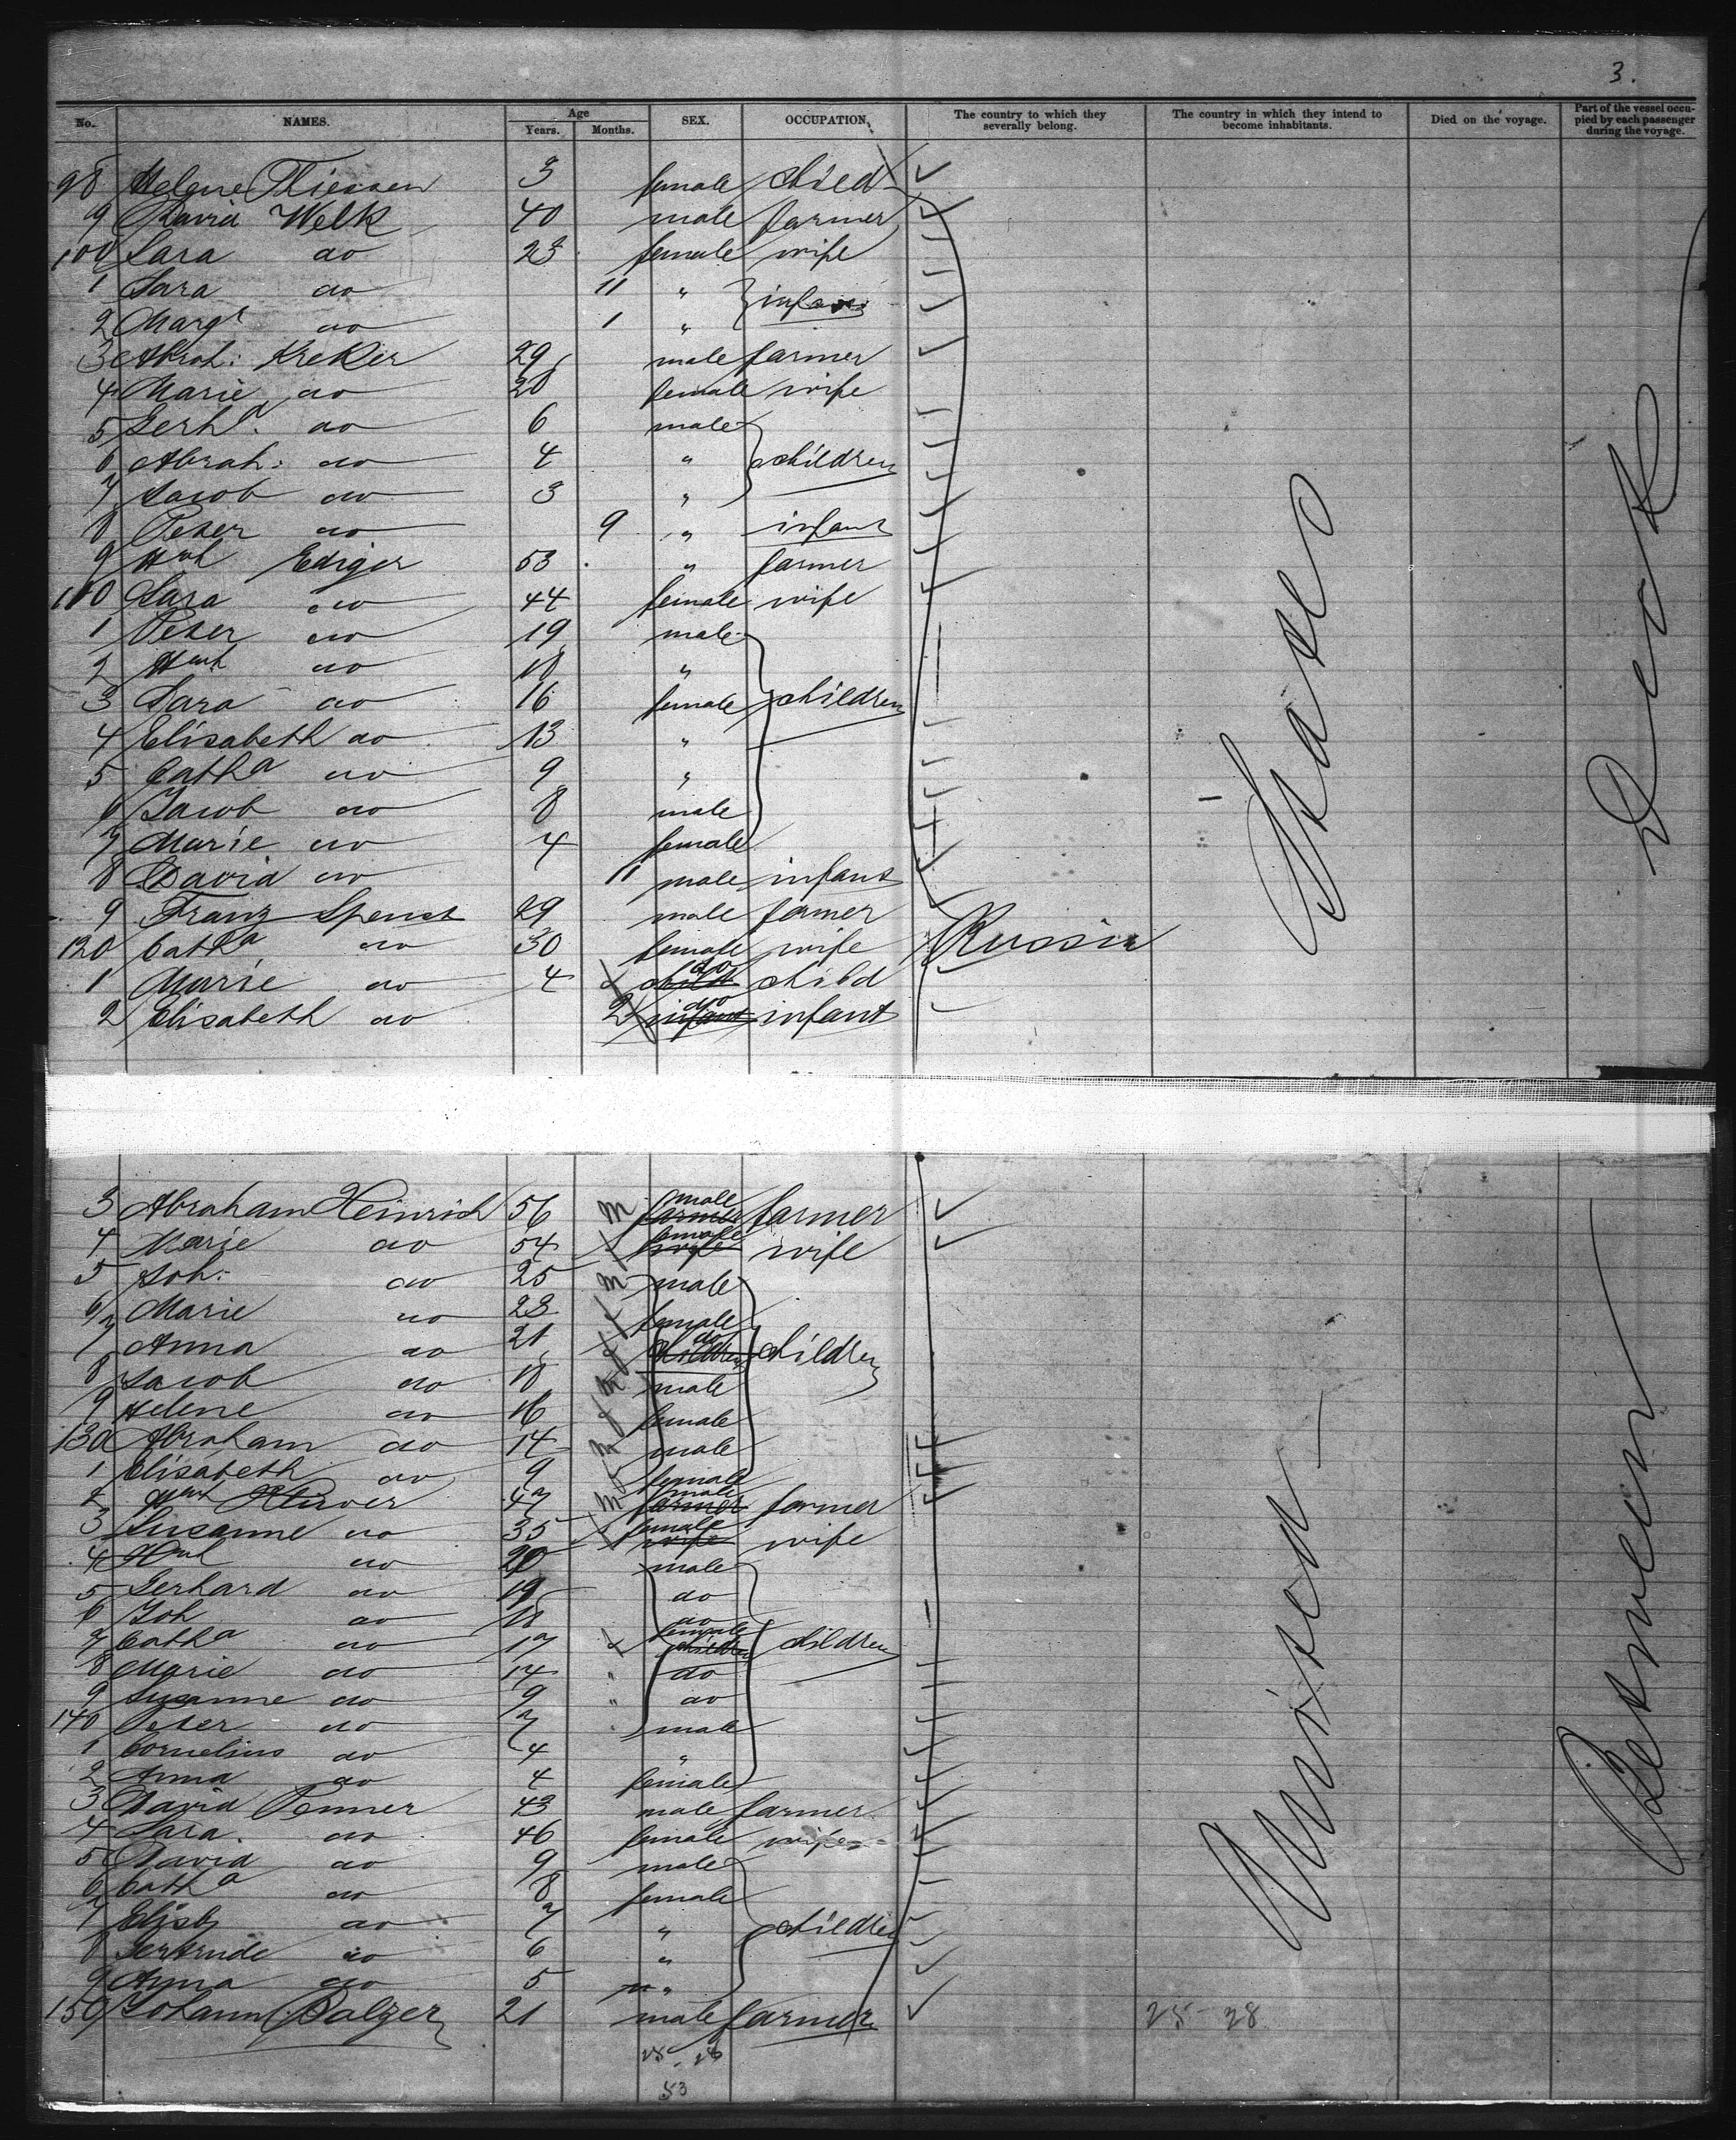 3.
No. NAMES. Age Years. Months. SEX. OCCUPATION. The country to which they severally belong. The country in which they intend to become inhabitants. Died on the voyage. Part of the vessel occupied by each passenger during the voyage.
98 Helene Thiessen 3 female child
9 David Welk 40 male farmer
100 Sara do 23 female wife
1 Sara do 11 " infants
2 Margt do 1 "
3 Abrah: Kreker 29 male farmer
4 Marie do 28 female wife
5 Gerhd. do 6 male
6 Abrah: do 4 " children
7 Jacob do 3 "
8 Peter do 9 " infant
9 Hrch Ediger 53 " farmer
110 Sara do 44 female wife
1 Peter do 19 male
2 Hrch do 18 "
3 Sara do 16 female children
4 Elisabeth do 13 "
5 Catha do 9 "
6 Jacob do 8 male
7 Marie do 4 female
8 David do 11 male infant
9 Franz Spenst 29 male farmer
120 Catha do 30 female wife Russia
1 Marie do 4 f child do child
2 Elisabeth do 2 infant do infant
3 Abraham Heinrich 56 m farmer male farmer
4 Marie do 54 f wife female wife
5 Joh: do 25 m male
6 Marie do 23 f female
7 Anna do 21 f children do children
8 Jacob do 18 m male
9 Helene do 16 f female
130 Abraham do 14 m male
1 Elisabeth do 9 f female
2 Hrch 47 m farmer male farmer
3 Susanne do 35 f wife female wife
4 Hrch do 20 male
5 Gerhard do 19 do
6 Joh do 18 do
7 Catha do 17 f children female children
8 Marie do 14 " do
9 Susanne do 9 " do
140 Peter do 7 male
1 Cornelius do 4 "
2 Anna do 4 female
3 David Penner 43 male farmer
4 Sara. do 46 female wife
5 David do 9 male
6 Catha do 8 female
7 Elisb do 7 " children
8 Gertrude do 6 "
9 Anna do 5 "
150 Johann Balzer 21 male farmer
25 - 28
28
53
United States
Between Deck